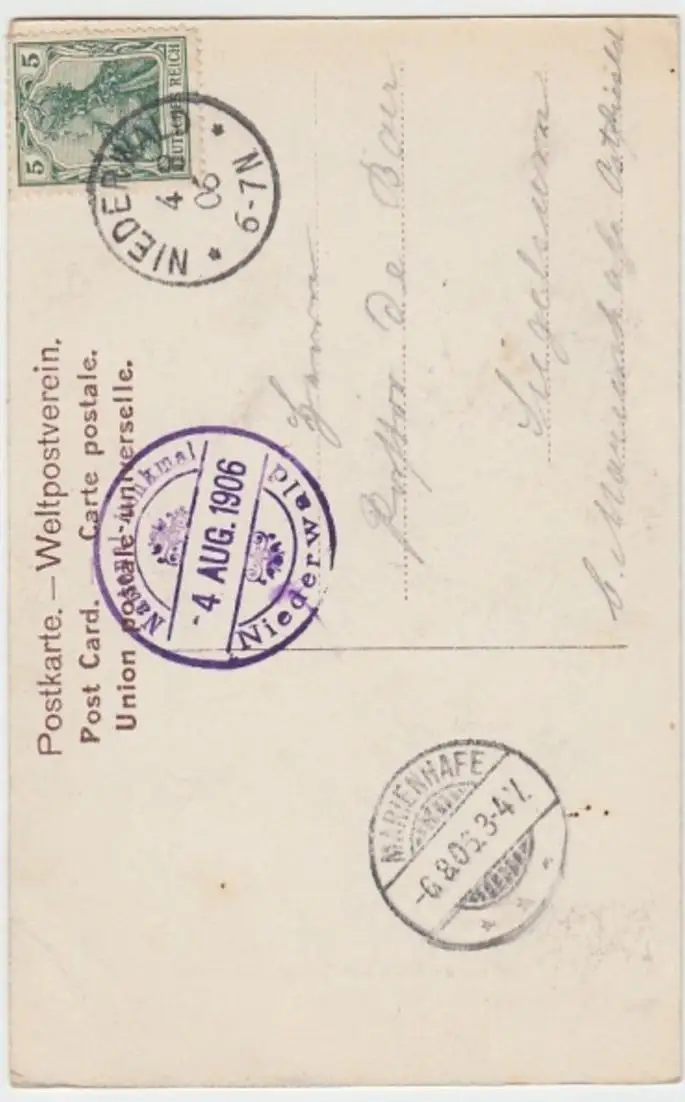 Postkarte. – Weltpostverein.
Post Card. Carte postale.
Union postale universelle.
5 5
DEUTSCHES REICH
NIEDERWALD
4 8
06
* 6-7N *
National-Denkmal
- 4 AUG. 1906
Niederwald
MARIENHAFE
-6.8.06.3-4 V.
* * *
Herrn
de Boer
b. Marienhafe